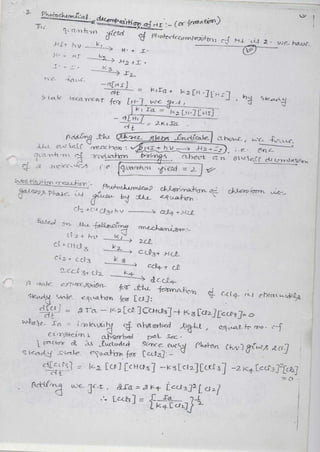 2. Photochemical decomposition of HI :- (or formation)
The quantum yield of Photodecomposition of HI is 2. we have
HI + hν k1→ H· + I·
H· + HI k2→ H2 + I·
I· + I· k3→ I2
we have
-d[HI]/dt = k1Ia + k2[H·][HI], by steady
state treatment for [H·] we get,
k1Ia = k2[H·][HI]
-d[HI]/dt = 2k1Ia
Adding the three steps indicated above, we have,
the overall reaction: 2HI + hν → H2 + I2 i.e. one
quantum of radiation brings about an overall decomposition
of 2 molecules i.e. quantum yield = 2
Photochemical chlorination of chloroform in
gaseous phase is given by the equation
Cl2 + CHCl3 + hν → CCl4 + HCl
based on the following mechanism:
Cl2 + hν k1→ 2Cl
Cl + CHCl3 k2→ CCl3 + HCl
Cl2 + CCl3 k3→ CCl4 + Cl
2CCl3 + Cl2 k4→ 2CCl4
A rate expression for the formation of CCl4 is obtained
steady state equation for [Cl]:
d[Cl]/dt = 2Ia - k2[Cl][CHCl3] + k3[Cl2][CCl3] = 0
where, Ia = intensity of absorbed light, equal to no. of
absorbed per sec.
factor 2 is included since every Photon (hν) gives 2Cl
steady state equation for [CCl3] -
d[CCl3]/dt = k2[Cl][CHCl3] - k3[Cl2][CCl3] - 2k4[CCl3]²[Cl2]
= 0
Adding we get, 2Ia = 2k4[CCl3]²[Cl2]
∴ [CCl3] = {Ia / k4[Cl2]}^½